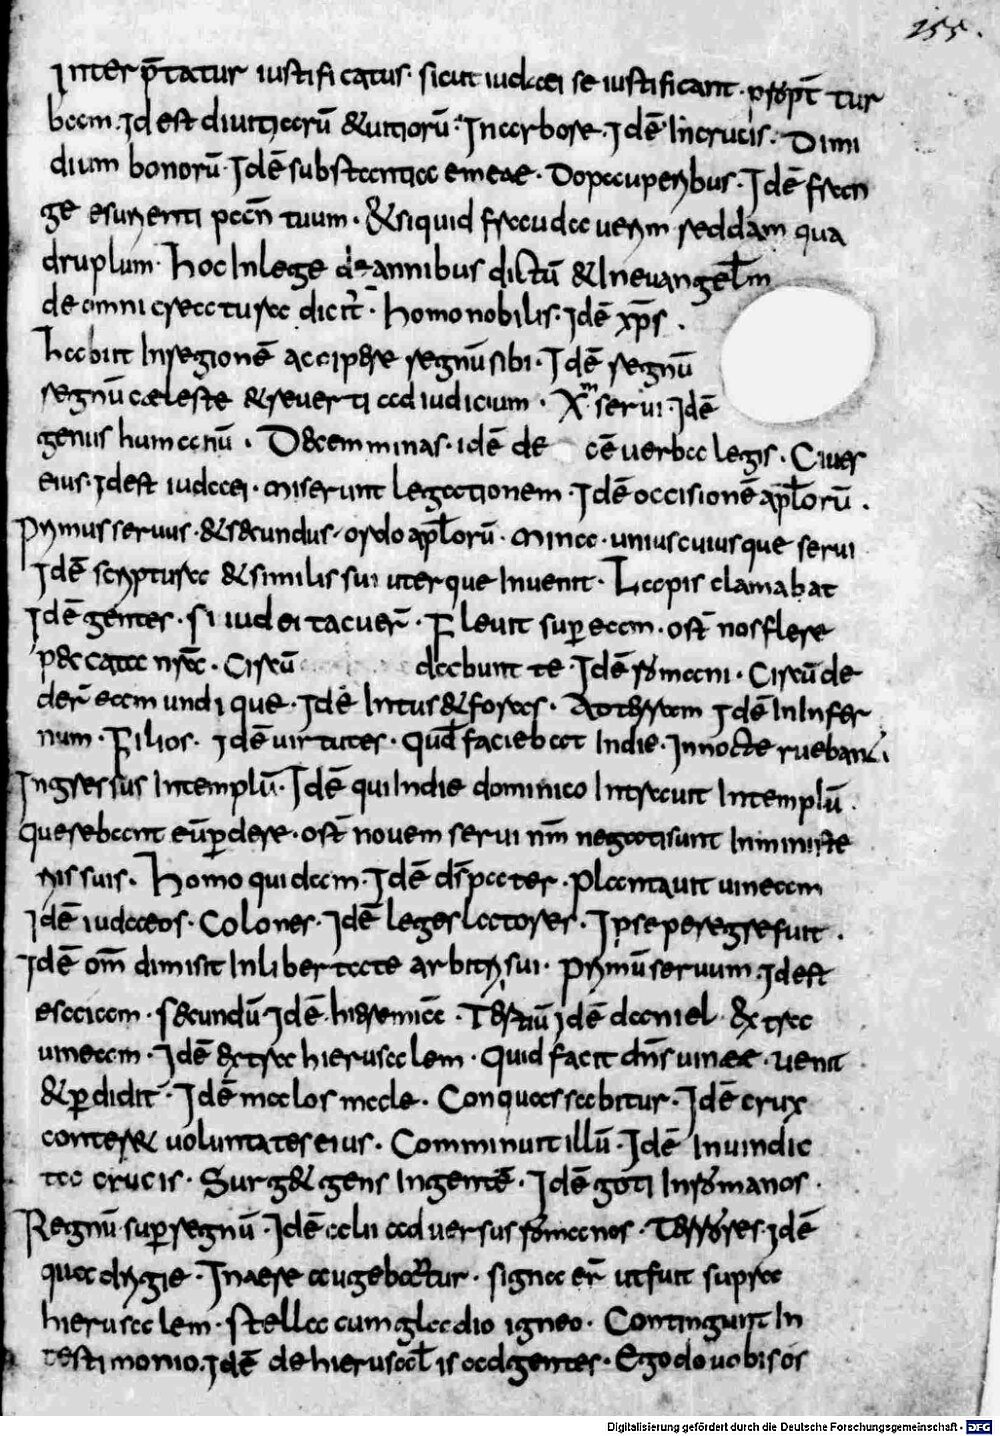 255.
Interp̄tatur iustificatus· sicut iudaei se iustificant· ꝓpt̄ tur
bam· Idest diuitiarū &uitiorū· Inarbore· Idē Incrucis· Dimi
dium bonorū· Idē substantiae meae· Dopauperibus· Idē fran
ge esurienti panē tuum· &siquid fraudaueram reddam qua
druplum· hoc Inlege de annibus dictū &Ineuangel̄m
de omni creatura dicit̄· homo nobilis· Idē xp̄s·
habiit Inregionē accipere regnū sibi· Idē regnū
regnū caeleste &reuerti ad iudicium· X^m serui· Idē
genus humanū· Decem minas· idē de cē uerba legis· Ciues
eius· Idest iudaei· miserunt legationem· Idē occisionē apl̄orū·
primus seruus· &secundus· ordo apl̄orū· mina· uniuscuiusque serui
Idē scriptura &similis sui uterque Inuenit· Lapis clamabat
Idē gentes· si iudei tacuer̄· Fleuit super eam· ost̄ nos flere
peccata nr̄a· Circū dabunt te· Idē romani· Circūde
der̄ eam undique· Idē Intus &foras· Ad terram Idē Ininfer
num· Filios· Idē uirtutes· Quod faciebat Indie· Innocte ruebant
Ingressus Intemplū· Idē qui Indie dominico Intrauit Intemplū·
querebant eū perdere· ost̄ nouem serui nm̄ negotiasunt Inministe
riis suis· Homo quidam· Idē dr̄ pater· plantauit uineam
Idē iudaeos· Colones· Idē leges lectores· Ipse peregre fuit·
Idē om̄ dimisit Inlibertate arbitrii sui· primū seruum· Idest
esaiam· secundū Idē· hieremiae· Tertiū Idē daniel· Extra
uineam· Idē extra hierusalem· Quid facit dn̄s uineae· uenit
&perdidit· Idē malos male· Conquassabitur· Idē crux
conteret uoluntates eius· Comminuit illū· Idē Inuindic
ta crucis· Surget gens Ingentē· Idē goti Inromanos·
Regnū super regnū· Idē alii aduersus romanos· Terrores· Idē
quae dirigie· Inaere augebantur· signa er̄ ut fuit supra
hierusalem· stella cum gladio igneo· Contingunt In
testimonio· Idē de hierusal̄ is adgentes· Ego do uobis os
Digitalisierung gefördert durch die Deutsche Forschungsgemeinschaft - DFG